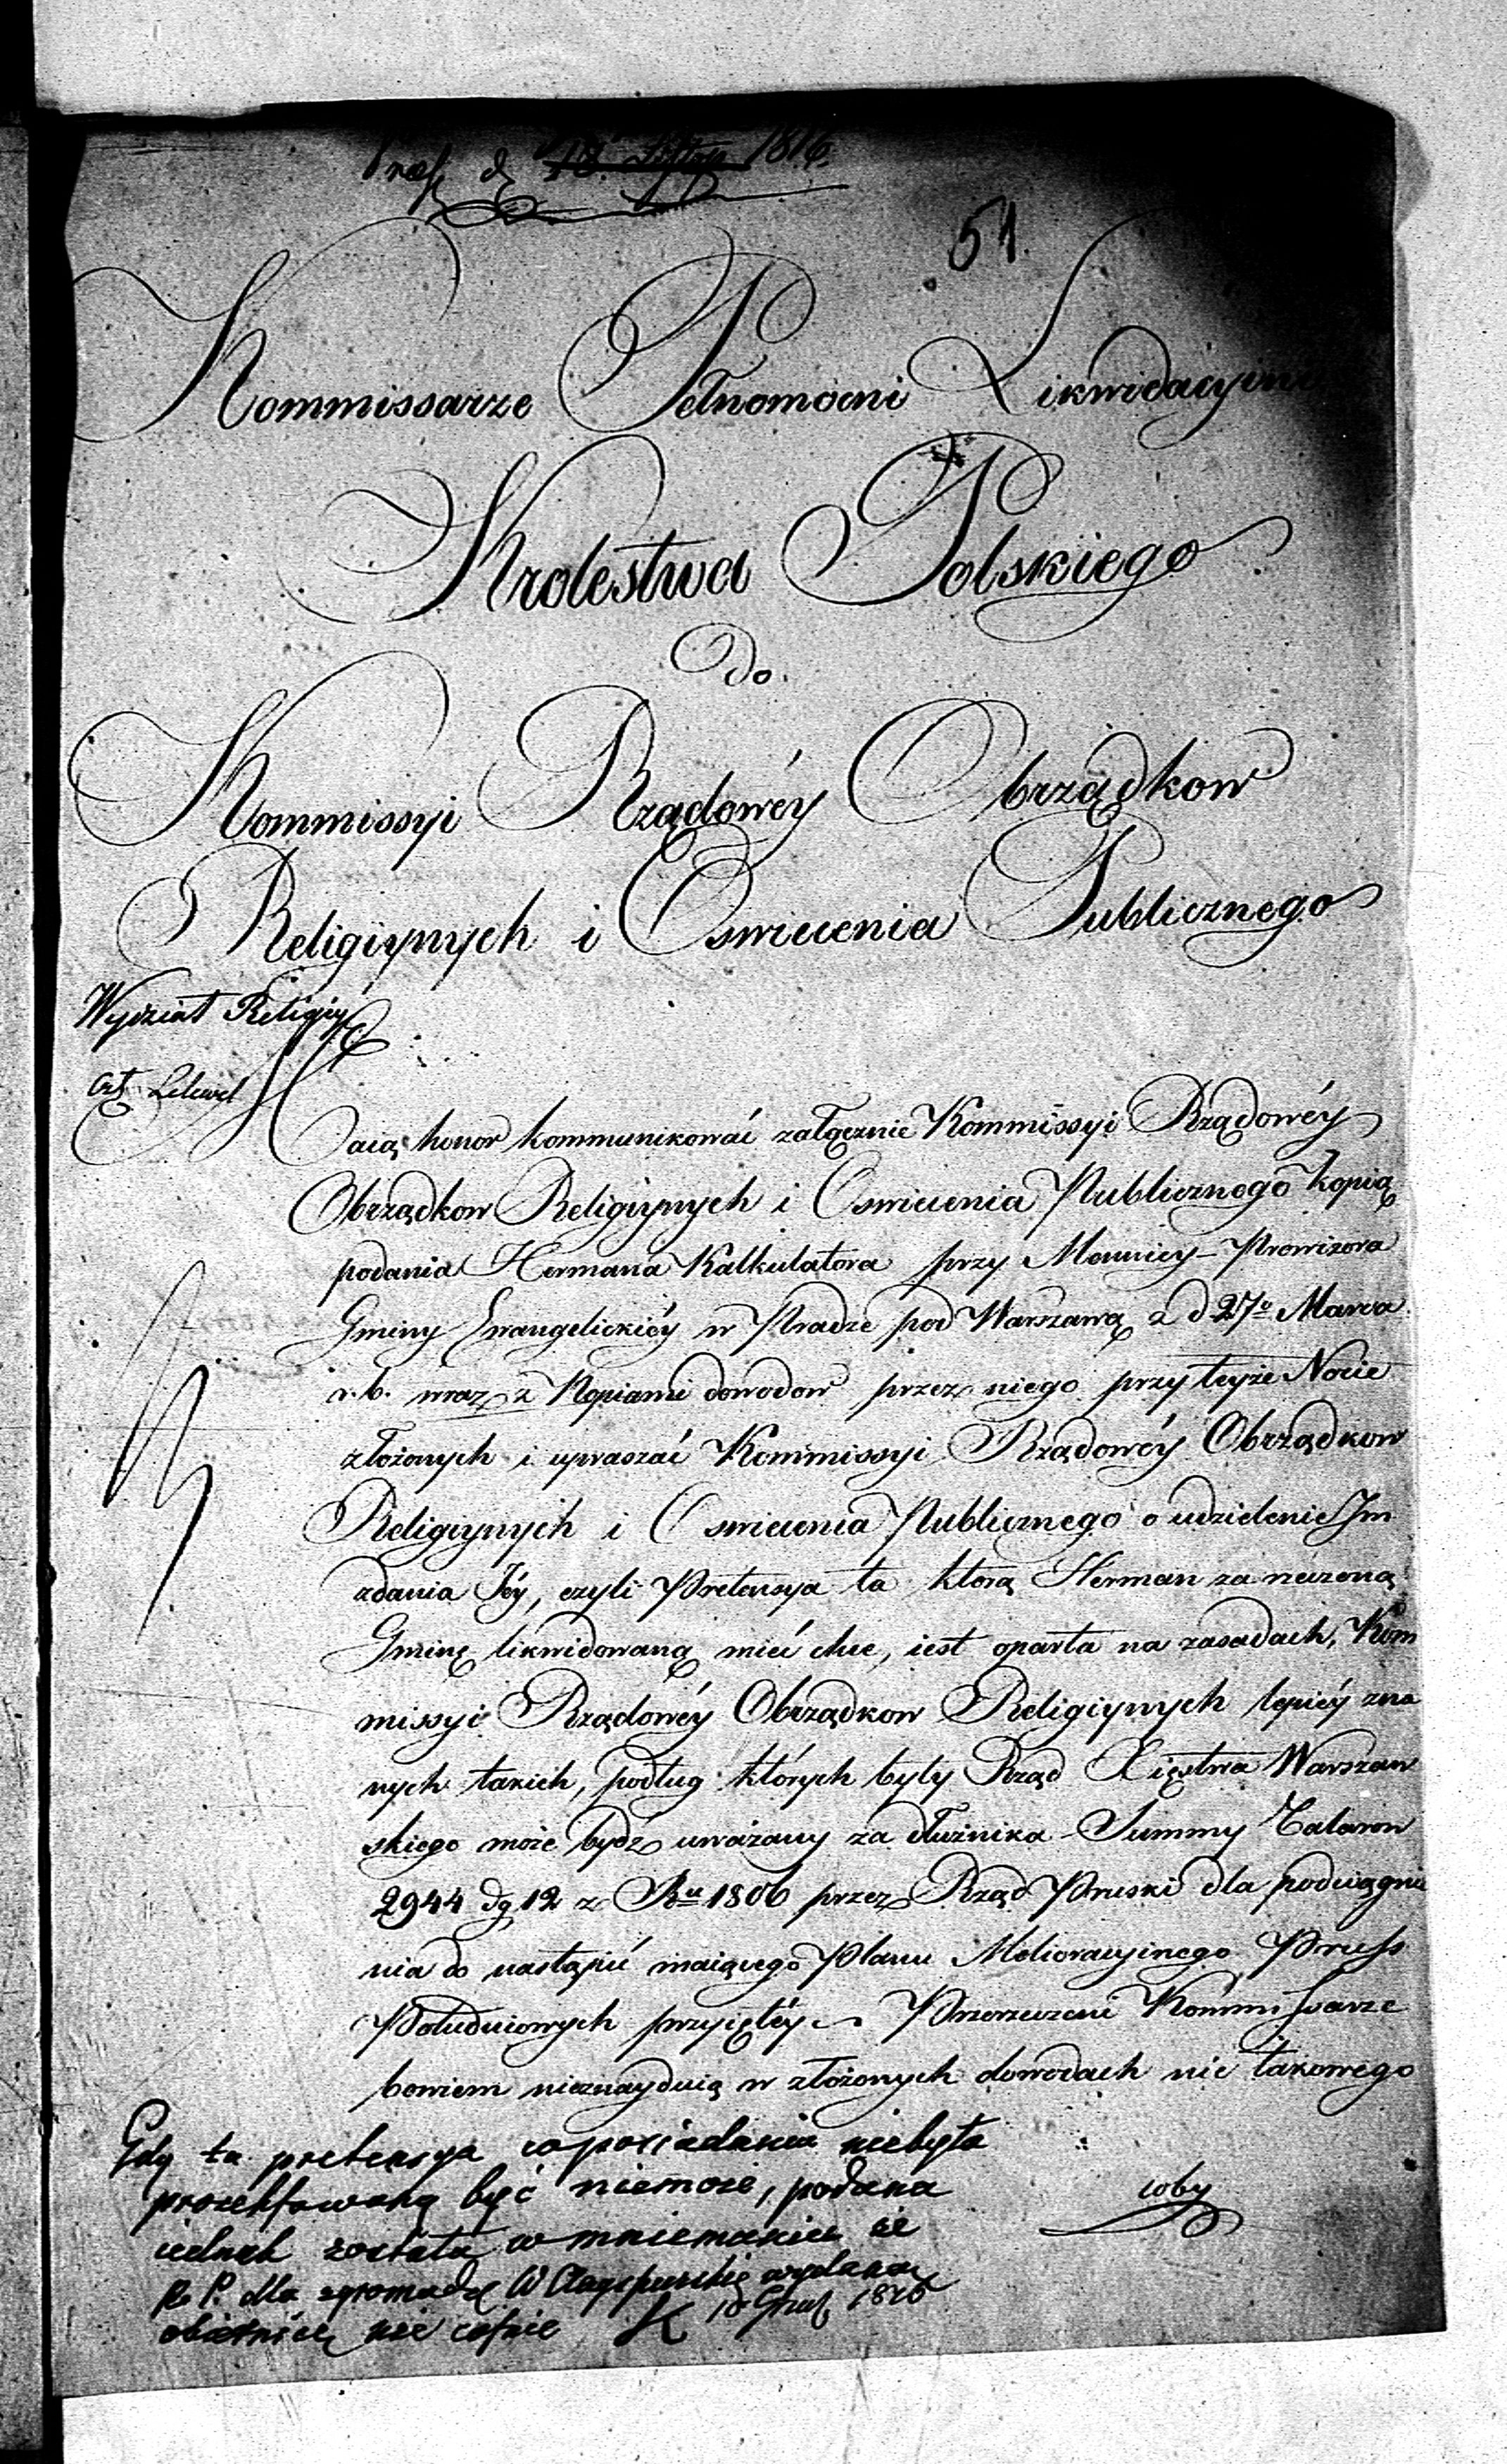 Præs d 18. 1816.
51.
Kommissarze Pełnomocni Likwidacyini
Krolestwa Polskiego
Do
Kommissyi Rządowéy Obrządkow
Religiynych i Oswiecenia Publicznego
Wydział Religiy
Lelewel
Maią honor kommunikować załącznie Kommissyi Rządowéy
Obrządkow Religiynych i Oswiecenia Publicznego kopią
podania Hermana Kalkulatora przy Mennicy - Prowizora
Gminy Ewangelickiéy w Pradze pod Warszawą z d 27º Marca
r. b. wraz z Kopiami dowodow przez niego przy teyże Nocie
złożonych i upraszać Kommissyi Rządowéy Obrządkow
Religiynych i Oswiecenia Publicznego o udzielenie Im
zdania Jéy, czyli Pretensya ta którą Herman za rzeczoną
Gminę likwidowaną mieć chce, iest oparta na zasadach, Kom
missyi Rządowéy Obrządkow Religiynych lepiéy zna
nych takich, podług których były Rząd Xięstwa Warszaw
skiego może bydź uważany za dłużnika - Summy Talarow
2944 dg 12 z Ru 1806 przez Rząd Pruski dla podciągnie
nia do nastąpić maiącego Planu Melioracyinego Pruss
Południowych przyiętéy - Przerzeczeni Kommissarze
bowiem nieznayduią w złożonych dowodach nic takowego
coby
Gdy ta pretensya zaposiadania niebyła
być niemoże, podana
iednak została w mniemaniu że
R. P. dla zgromadze. wydaną
obietnicę nie cofnie K 18 Grud 1816